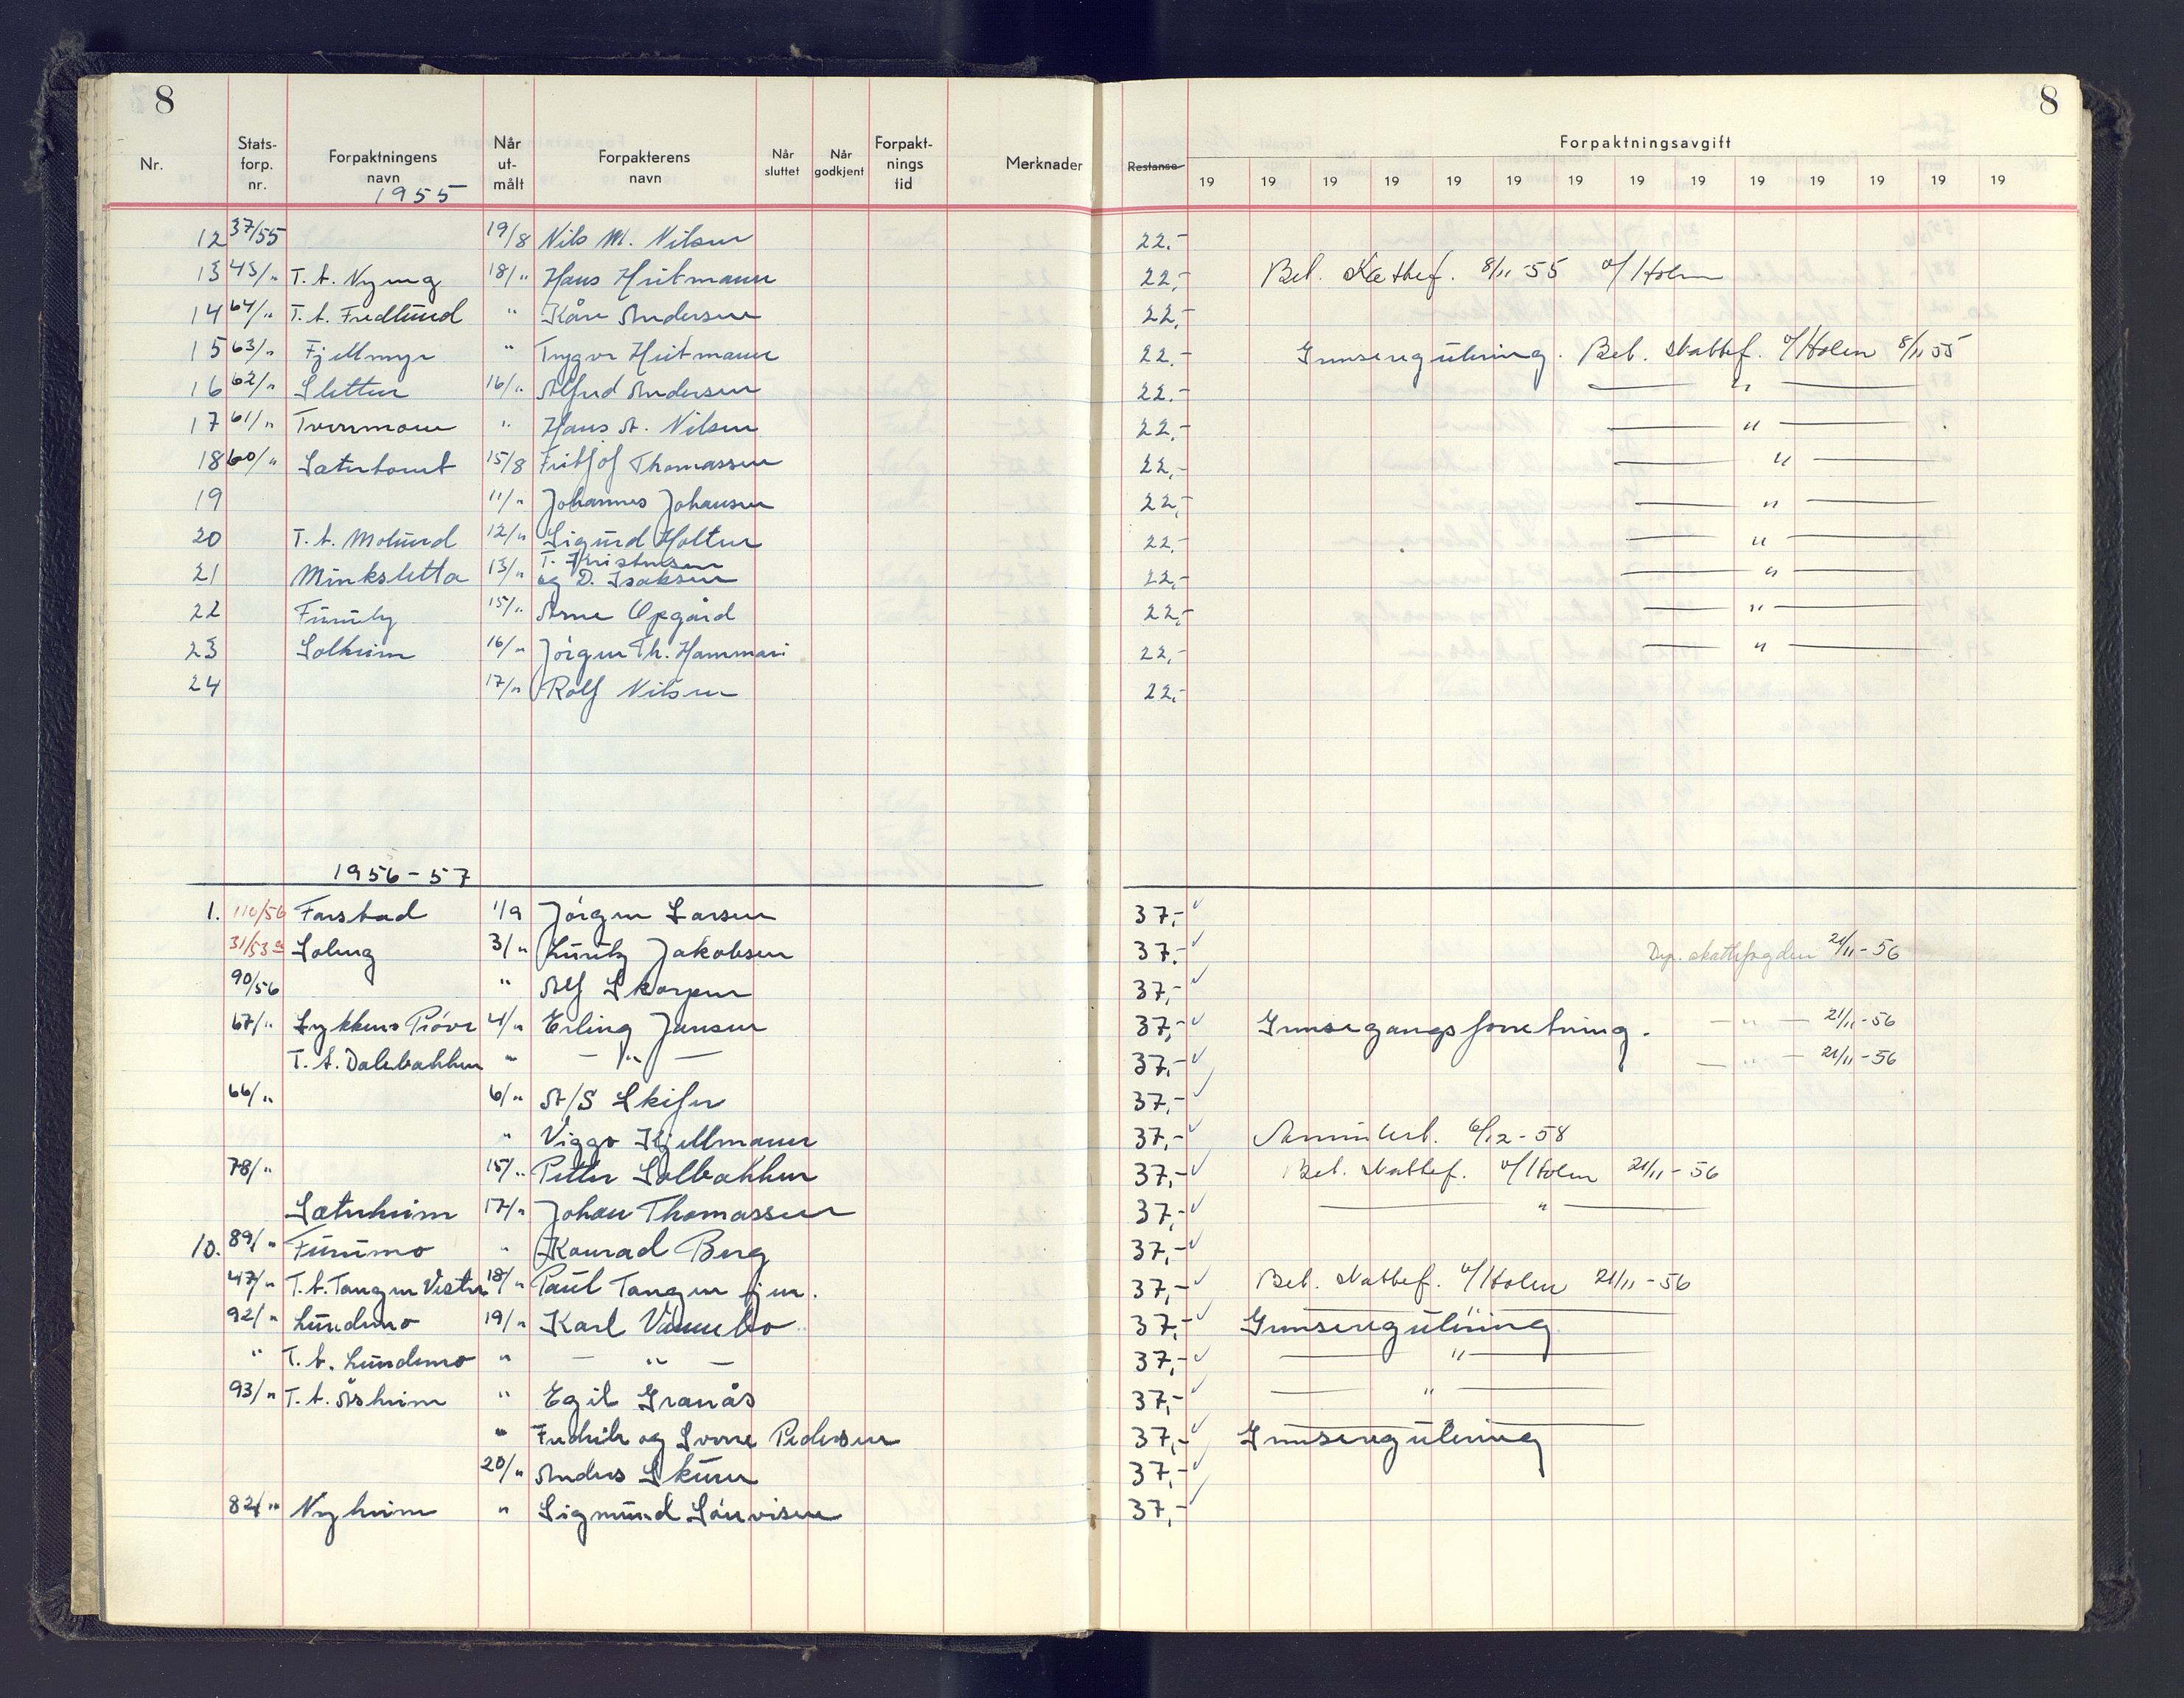 8
8
Nr.
Stats-
forp.
nr.
Forpaktningens
navn
Når
ut-
målt
Forpakterens
navn
Når
sluttet
Når
godkjent
Forpakt-
nings
tid
Merknader
Restanse
Forpaktningsavgift
19 19 19 19 19 19 19 19 19 19 19 19 19 19
1955
12 37/55 19/8 Nils M. Nilsen 22.-
13 45/" T. t. Nyeng 18/" Hans Heitmann 22,- Bet. Skattef. 8/11-55 v/Holm
14 64/" T. t. Fredlund " Kåre Andersen 22,-
15 63/" Fjellmyr " Trygve Heitmann 22.- Grenseregulering. Bet. skattef. v/Holm 8/11 55
16 62/" Sletten 16/" Alfred Andersen 22.- — " —
17 61/" Tverrmoen " Hans A. Nilsen 22,- — " —
18 60/" Sætertomt 15/8 Fritjof Thomassen 22,- — " —
19 11/" Johannes Johansen 22,- — " —
20 T. t. Molund 12/" Sigurd Holten 22.- — " —
21 Minksletta 13/" T. Kristensen
og D. Isaksen 22,- — " —
22 Furuly 15/" Arne Opgård 22,- — " —
23 Solheim 16/" Jörgen Th. Hammari 22,- — " —
24 17/" Rolf Nilsen 22,-
1956-57
1. 110/56 Farstad 1/9 Jörgen Larsen 37,-
31/53 Soleng 3/" Lundy Jakobsen 37.- Dep. skattefogden 21/11-56
90/56 " Alf Skorpen 37,-
67/" Lykkens Pröve 4/" Erling Jensen 37,- Grensegangsforretning. — " — 21/11-56
T. t. Dalebakken " — " — 37,- — " — 21/11-56
66/" 6/" A/S Skifer 37,-
" Viggo Kjellmann 37,- 6/12-58
78/" 15/" Petter Solbakken 37,- Bet. skattef. v/Holm 21/11-56
Sæterheim 17/" Johan Thomassen 37,- — " —
10. 89/" Furumo " Konrad Berg 37,-
47/" T. t. Tangen Vestre 18/" Paul Tangen jun. 37,- Bet. skattef. v/Holm 21/11-56
92/" Lundemo 19/" Karl Vannebo 37,- — " —
Grenseregulering
" T. t. Lundemo " — " — 37,- — " —
93/" T. t. Åsheim " Egil Granås 37,- — " —
" Fredrik og Sverre Pedersen 37,- — " —
Grenseregulering
20/" Anders Skum 37,-
82/" Nyheim " Sigmund Sörvisen 37,-